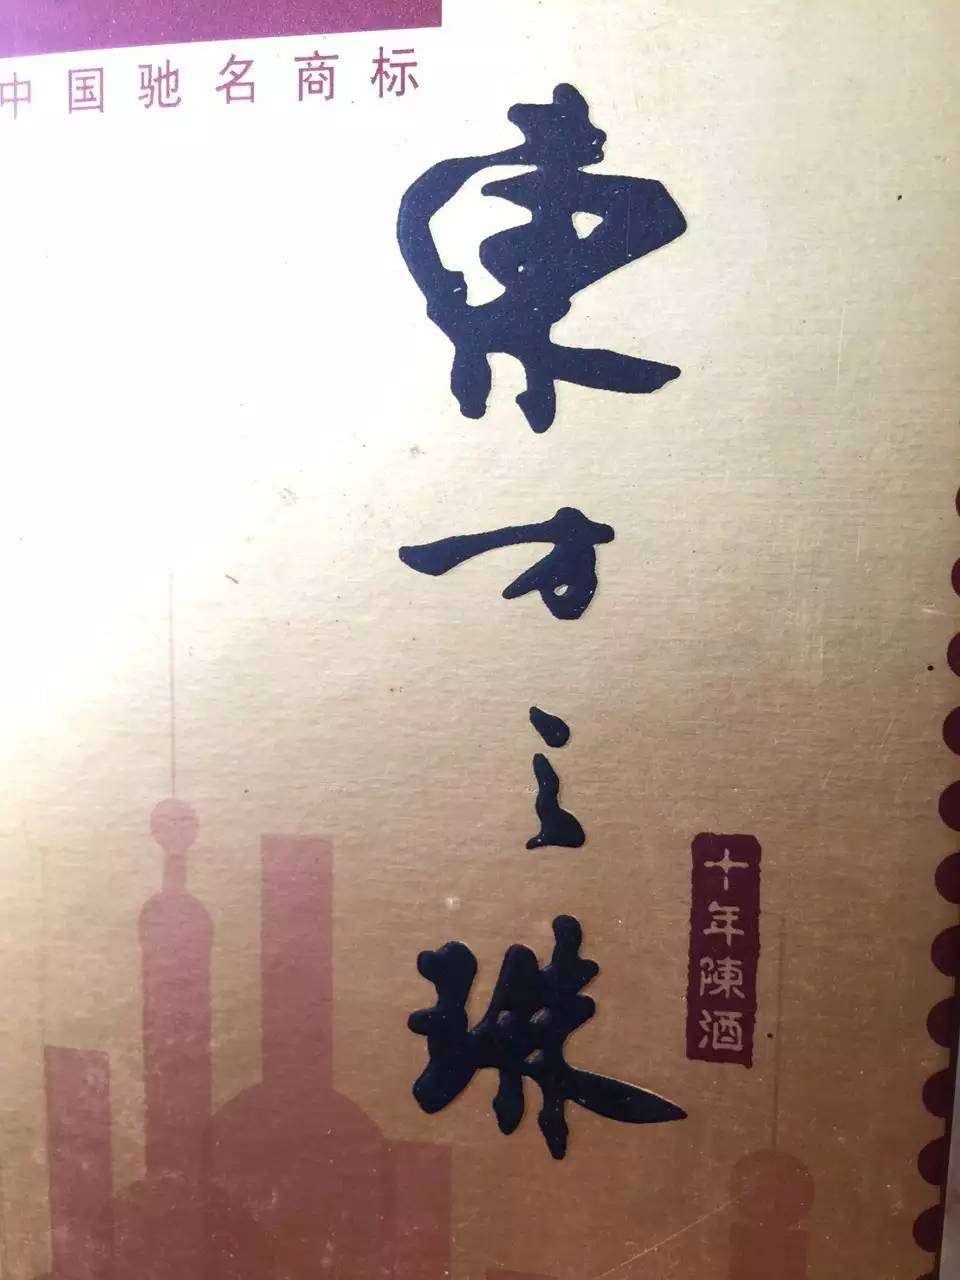 中国驰名商标
東方之珠
十年陳酒